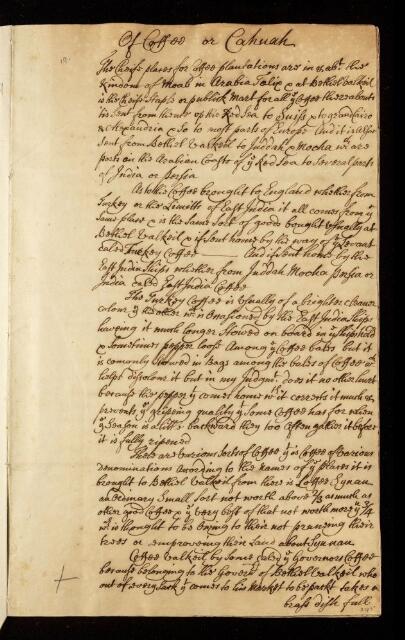 Of Coffee or Cahuah
The cheife places for Coffee plantations are in & abt. the
Kindom of Moab in Arabia Felix & at Bethel Valkeil
is the cheife Staple or publick Mart for all ye Coffee thereabouts
tis Sent from thence up the Red Sea to Suiss & to grand Cairo
& Alexandria & So to most parts of Europe And it is allso
Sent from Bethel Valkeil to Juddah & Mocha wch are
ports on the Arabian Coast of ye Red Sea to Several parts
of India or Persia
As to the Coffee brought to England whether from
Turkey or the Limitts of East India it all comes from ye
Same place & is the Same Sort of goods bought usually at
Bethel Valkeil & if Sent home by the way of ye Levant
caled Turkey Coffee And if Sent home by the
East India Ships whether from Juddah Mocha Persia or
India caled East India Coffee
The Turkey Coffee is usually of a brighter cleaner
colour yn the other wch is occasioned by the East India Ships
haveing it much longer Stowed on board in ye Ships hold
& Sometimes pepper loose Among ye Coffee bales but it
is comonly stowed in bags among the bales of Coffee wch
helps discolour it but in my Judgmt. does it no other hurt
because the pepper yt comes home wth it corrects it much &
prevents ye gripeing quality yt Some Coffee has for when
ye Season is a little backward they too often gather it before
it is fully ripened
There are various Sorts of Coffee yt is Coffee of various
denominations according to the names of ye places it is
brought to Bethel Valkeil from there is Coffee Eynau
an Ordinary Small Sort not worth above 2/3 as much as
other good Coffee & ye very best of that not worth more yn 3/4
wch is thought to be owing to their not pruneing their
trees or improveing their Land about Eynau
Coffee Valkeil by Some caled ye Governors Coffee
because belonging to the Governr. of Bethel Valkeil who
out of every Sack yt comes to his Market to be packt takes a
brass dish full